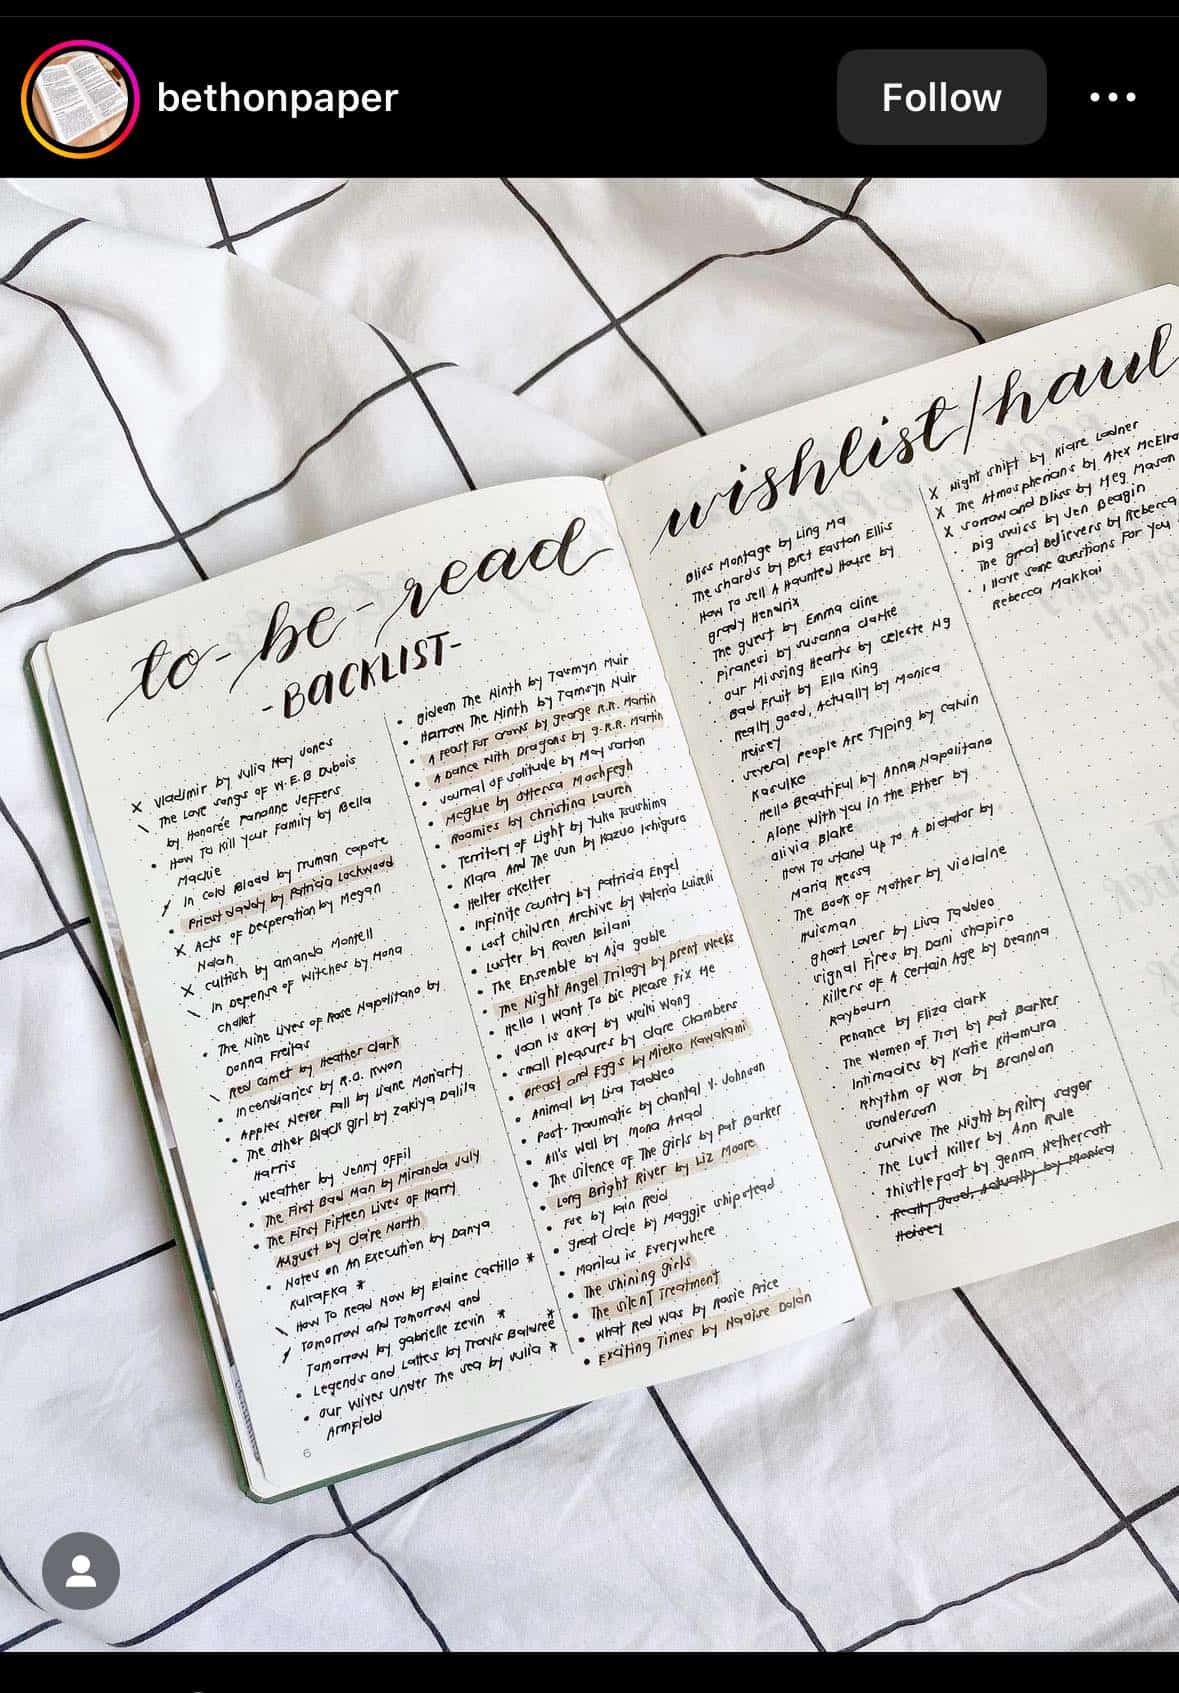 bethonpaper
Follow
to-be-read
-BACKLIST-
X Vladimir by Julia May Jones
\ The Love Songs of W.E.B Dubois
by Honorée Fanonne Jeffers
• How To Kill Your Family by Bella
Mackie
/ In Cold Blood by Truman Capote
• Priest Daddy by Patricia Lockwood
X Acts of Desperation by Megan
Nolan
X Cultish by Amanda Montell
\ In Defense of Witches by Mona
Chollet
• The Nine Lives of Rose Napolitano by
Donna Freitas
\ Red Comet by Heather Clark
• Incendiaries by R.O. Kwon
• Apples Never Fall by Liane Moriarty
• The Other Black Girl by Zakiya Dalila
Harris
• Weather by Jenny Offil
• The First Bad Man by Miranda July
• The First Fifteen Lives of Harry
August by Claire North
• Notes on An Execution by Danya
Kukafka *
\ How To Read Now by Elaine Castillo *
/ Tomorrow and Tomorrow and
Tomorrow by Gabrielle Zevin *
• Legends and Lattes by Travis Baldree *
• Our Wives Under The Sea by Julia *
Armfield
6
• Gideon The Ninth by Tasmyn Muir
• Harrow The Ninth by Tamsyn Muir
• A Feast For Crows by George R.R. Martin
• A Dance With Dragons by G.R.R. Martin
• Journal of Solitude by May Sarton
• McGlue by Ottessa Moshfegh
• Roomies by Christina Lauren
• Territory of Light by Yuko Tsushima
• Klara And The Sun by Kazuo Ishiguro
• Helter Skelter
• Infinite Country by Patricia Engel
• Lost Children Archive by Valeria Luiselli
• Luster by Raven Leilani
• The Ensemble by Aja Gable
• The Night Angel Trilogy by Brent Weeks
• Hello I Want To Die Please Fix Me
• Joan is Okay by Weiki Wang
• Small Pleasures by Clare Chambers
• Breast and Eggs by Mieko Kawakami
• Animal by Lisa Taddeo
• Post-Traumatic by Chantal V. Johnson
• All's Well by Mona Awad
• The Silence of The Girls by Pat Barker
• Long Bright River by Liz Moore
• Foe by Iain Reid
• Great Circle by Maggie Shipstead
• Marilou is Everywhere
• The Shining Girls
• The Silent Treatment
• What Red Was by Rosie Price
• Exciting Times by Naoise Dolan
wishlist/haul
• Bliss Montage by Ling Ma
• The Shards by Bret Easton Ellis
• How To Sell A Haunted House by
Grady Hendrix
• The Guest by Emma Cline
• Piranesi by Susanna Clarke
• Our Missing Hearts by Celeste Ng
• Bad Fruit by Ella King
• Really Good, Actually by Monica
Heisey
• Several People Are Typing by Calvin
Kasulke
• Hello Beautiful by Anna Napolitano
• Alone With You in the Ether by
Olivia Blake
• How To Stand Up To A Dictator by
Maria Ressa
• The Book of Mother by Violaine
Huisman
• Ghost Lover by Lisa Taddeo
• Signal Fires by Dani Shapiro
• Killers of A Certain Age by Deanna
Raybourn
• Penance by Eliza Clark
• The Women of Troy by Pat Barker
• Intimacies by Katie Kitamura
• Rhythm of War by Brandon
Sanderson
• Survive The Night by Riley Sager
• The Lust Killer by Ann Rule
• Thistlefoot by Genna Nethercott
• Really Good, Actually by Monica
Heisey
X Night Shift by Kiare Ladner
X The Atmospherians by Alex McElro
X Sorrow and Bliss by Meg Mason
• Big Swiss by Jen Beagin
• The Great Believers by Rebecca
• I Have Some Questions For You
Rebecca Makkai